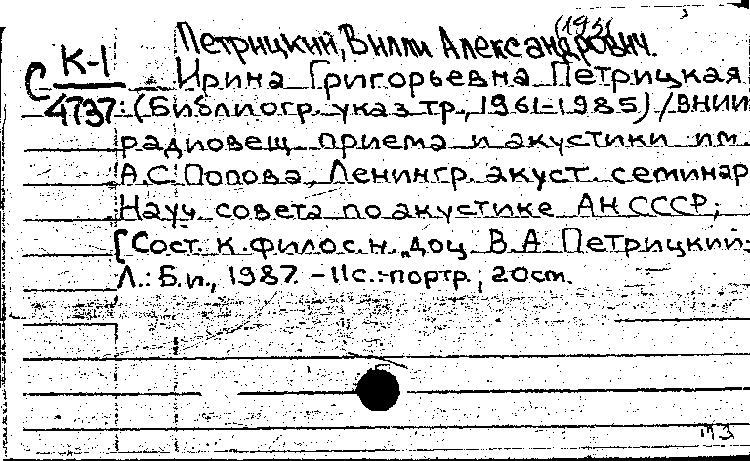 Петрицкий, Вилли Александрович. (1931
С К-1 Ирина Григорьевна Петрицкая
4737: (Библиогр. указ. тр., 1961-1985) / ВНИИ
радиовещ. приема и акустики им.
А.С. Попова, Ленингр. акуст. семинар
Науч. совета по акустике АН СССР;
[Сост. к. филос. н., доц. В.А. Петрицкий.
Л.: Б.и., 1987. - 11с.: портр.; 20см.